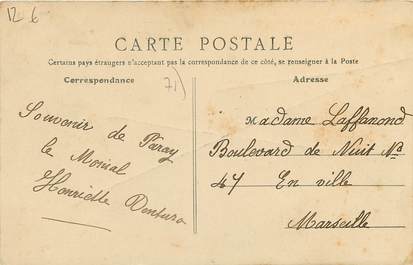 12 6
CARTE POSTALE
Certains pays étrangers n'acceptant pas la correspondance de ce côté, se renseigner à la Poste
Correspondance
71)
Souvenir de Paray
le Monial
Henriette
Adresse
Madame Laffanond
Boulevard de Nuit No
47 En ville
Marseille